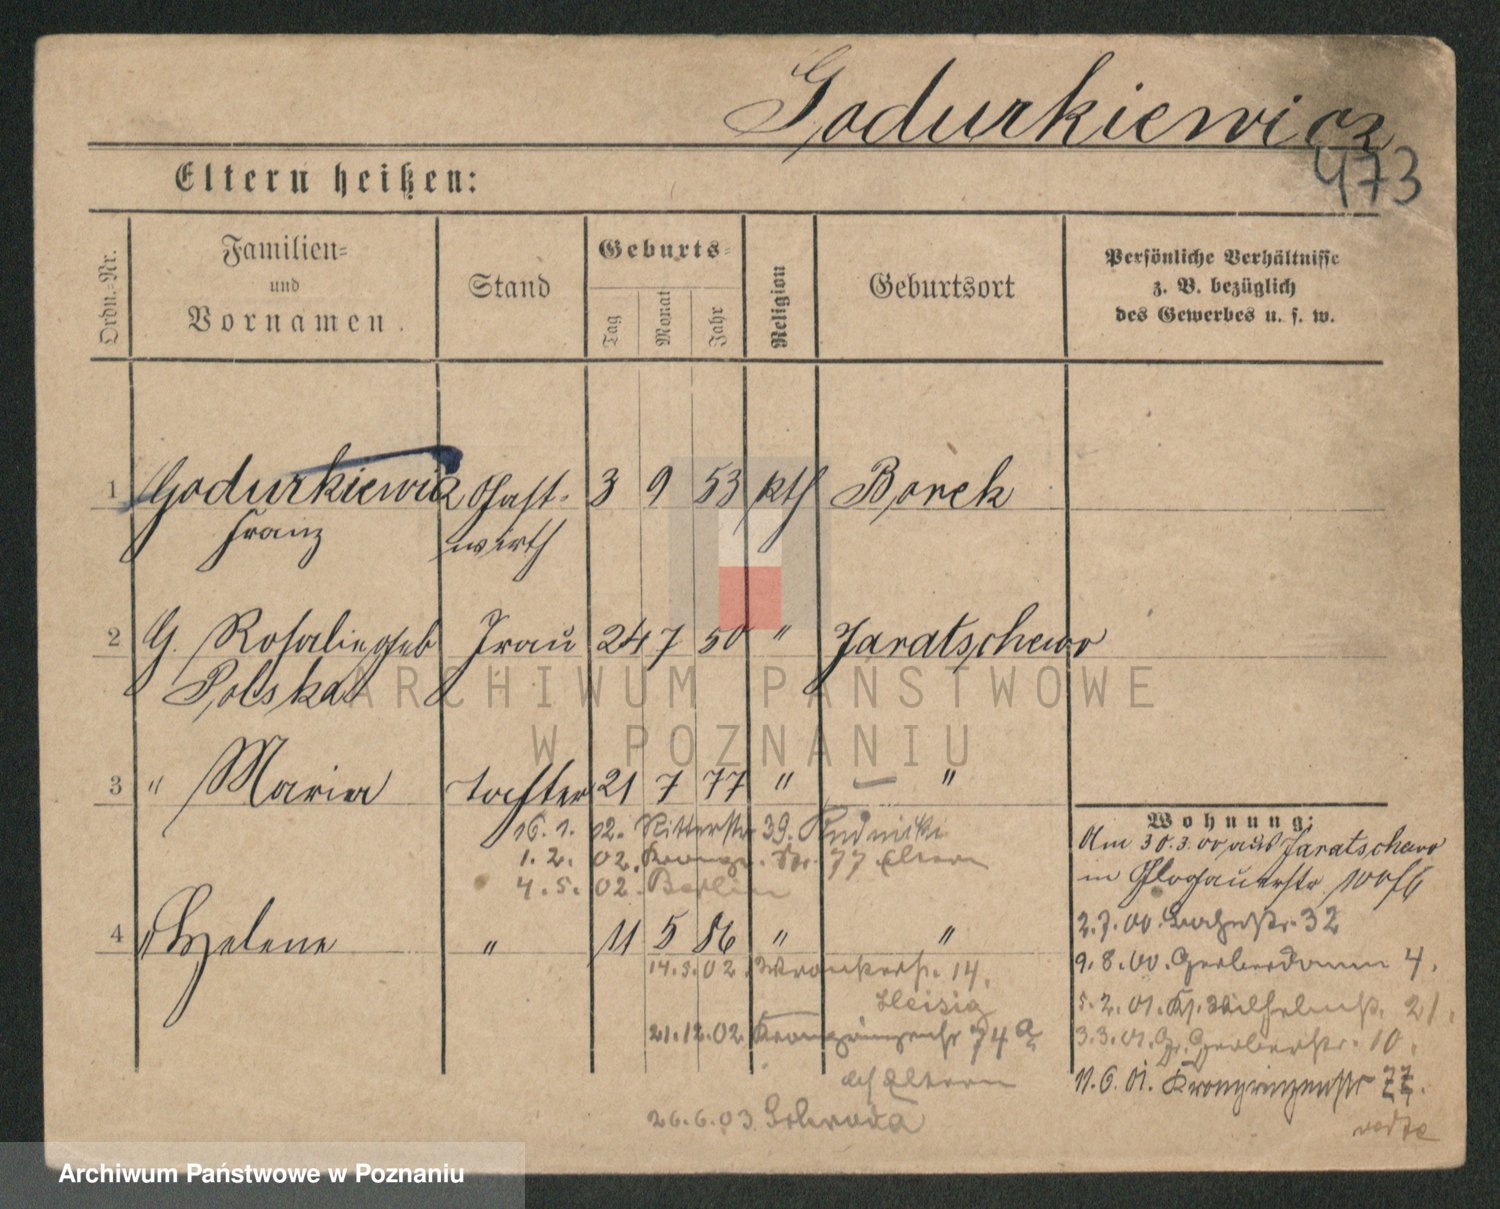 Godurkiewicz
473
Eltern heißen:
Ordn.-Nr.
Familien- und Vornamen.
Stand
Geburts-
Tag
Monat
Jahr
Religion
Geburtsort
Persönliche Verhältnisse
z. B. bezüglich
des Gewerbes u. s. w.
1 Godurkiewicz Gast- 3 9 53 kth Borek
Franz wirth
2 G. Rosalie geb Frau 24 7 50 " Jaratschewo
Polska
ARCHIWUM PAŃSTWOWE
W POZNANIU
3 " Maria Tochter 21 7 77 " "
16. 1. 02. Ritterstr 39. Rudnicki
1. 2. 02. Kronpr. Str. 77 Eltern
4. 5. 02. Berlin
4 " Helene " 11 5 86 " "
14. 3. 02. 14.
21. 12. 02. Kronprinzenstr 74a
Eltern
26. 6. 03. Schroda
Wohnung:
Am 30.3.00 aus Jaratschewo
in Glogauerstr 100
2. 7. 00. 32
9. 8. 00. Gerberdamm 4.
5. 2. 01. Kl. 21.
3. 3. 01. Gr. Gerberstr. 10.
11. 6. 01. Kronprinzenstr 77.
Archiwum Państwowe w Poznaniu